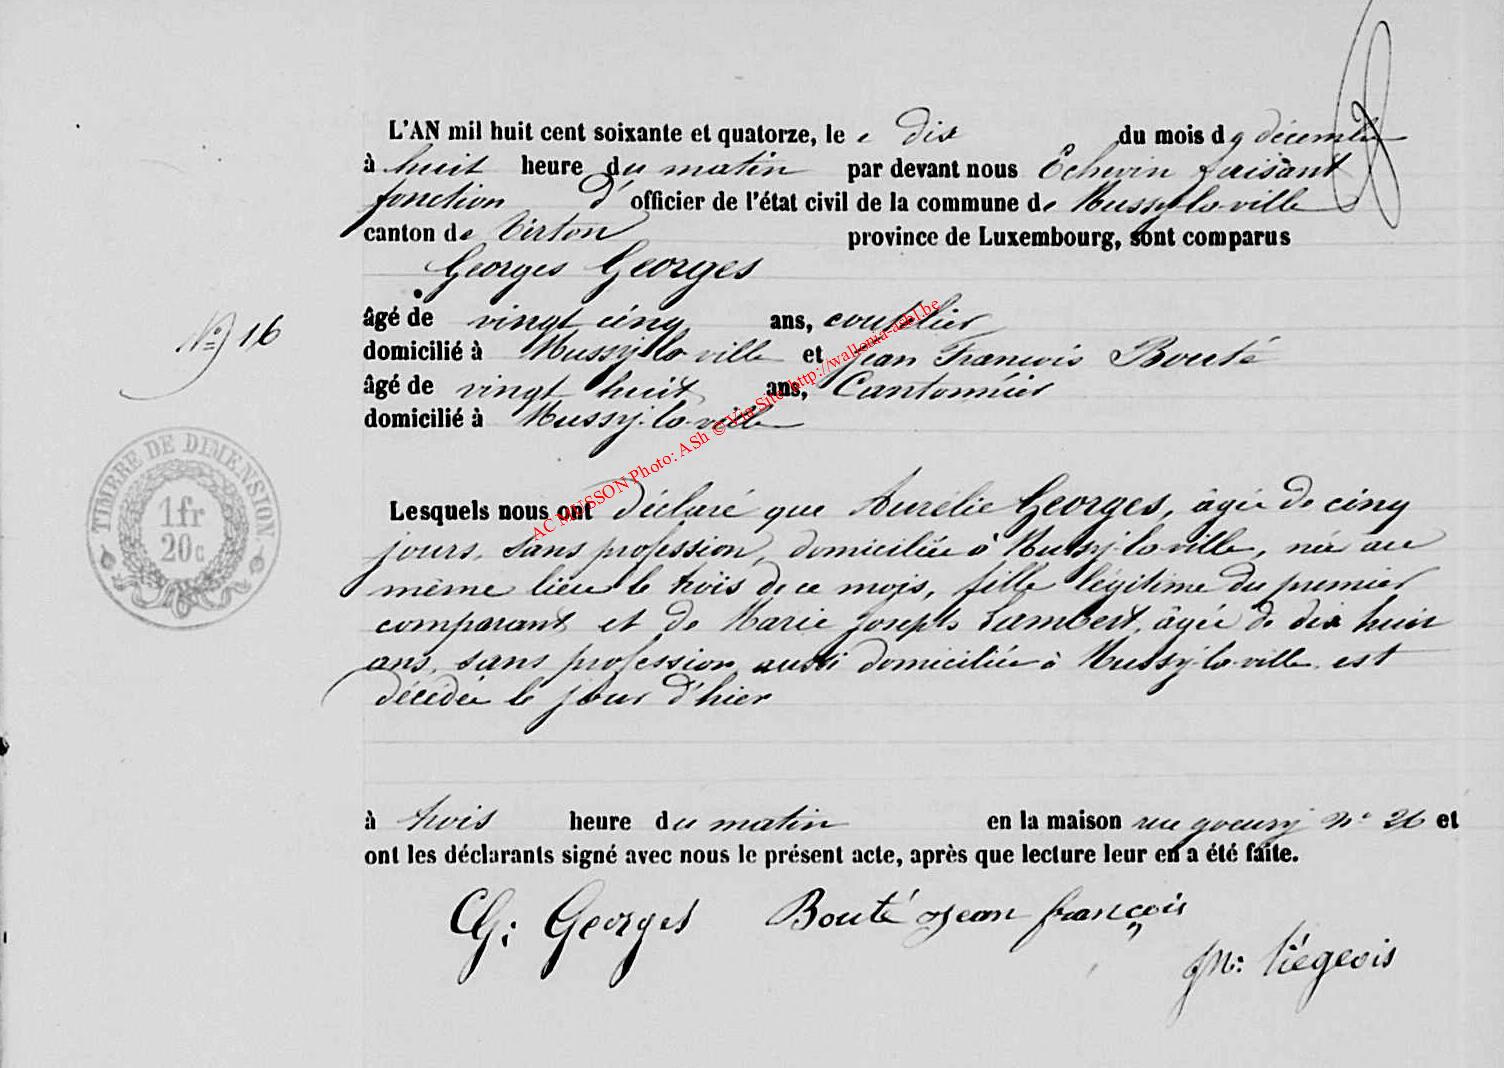 L'AN mil huit cent soixante et quatorze, le dix du mois de décembre
à huit heure du matin par devant nous Echevin faisant
fonction d'officier de l'état civil de la commune de Mussy-la-ville
canton de Virton province de Luxembourg, sont comparus
Georges Georges
N° 16
âgé de vingt cinq ans,
domicilié à Mussy-la-ville et Jean François Bouté
âgé de vingt huit ans, Cantonnier
domicilié à Mussy-la-ville
AC MUSSON Photo: ASh © Via Site http://wallonia-asbl.be
TIMBRE DE DIMENSION
1fr
20c
Lesquels nous ont déclaré que Aurélie Georges, âgée de cinq
jours, sans profession, domiciliée à Mussy-la-ville, née au
même lieu le trois de ce mois, fille légitime du premier
comparant et de Marie Joseph Lambert, âgée de dix huit
ans, sans profession, aussi domiciliée à Mussy-la-ville, est
décédée le jour d'hier
à trois heure du matin en la maison rue N° 26 et
ont les déclarants signé avec nous le présent acte, après que lecture leur en a été faite.
G: Georges Bouté Jean françois
Liégeois